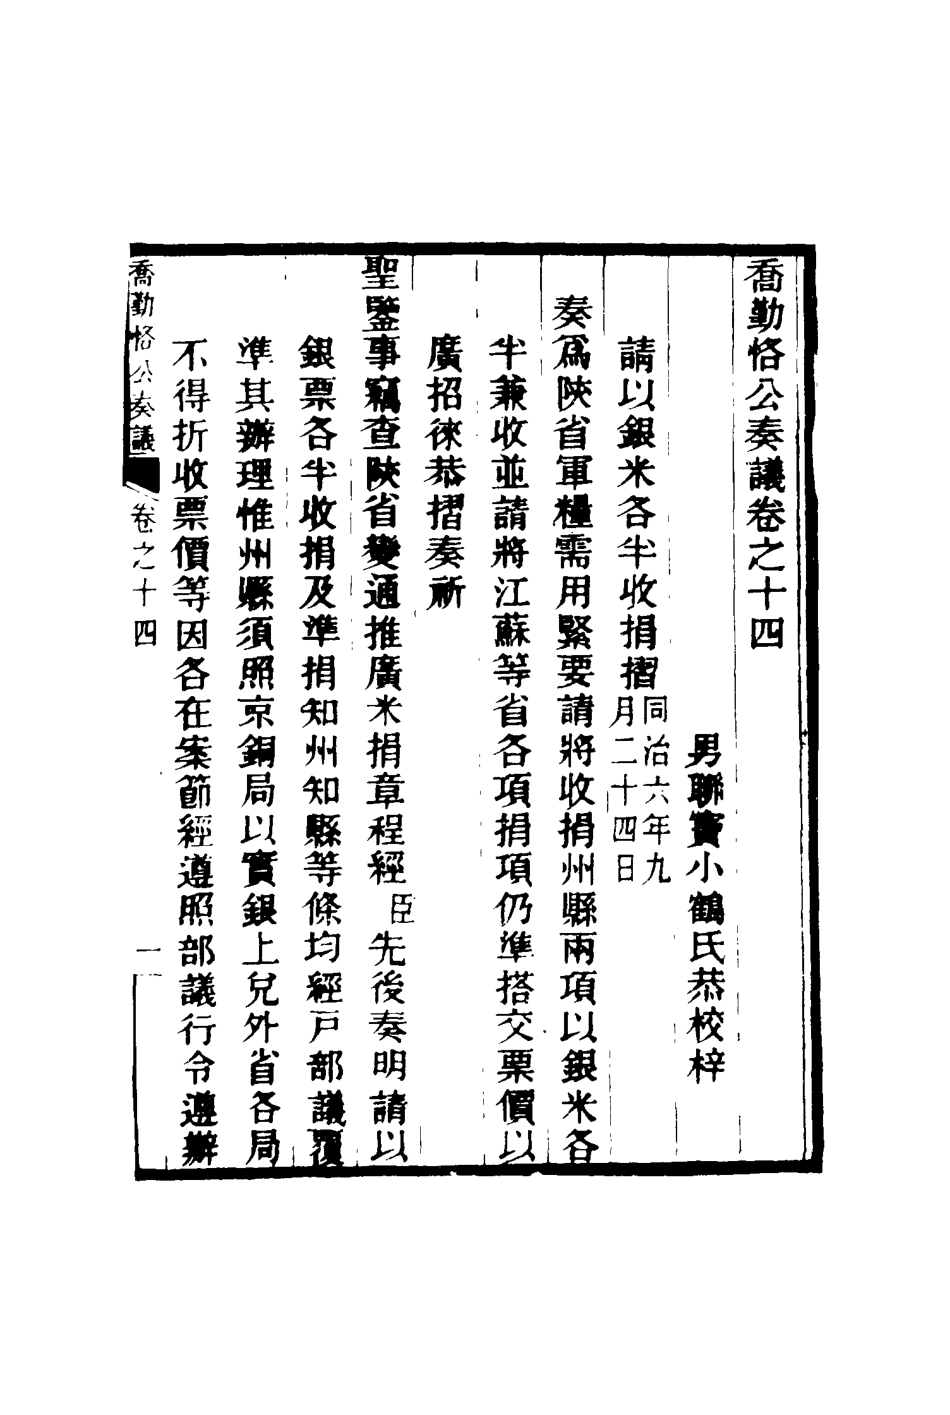 喬勤恪公奏議卷之十四
男聯寶小鶴氏恭校梓
請以銀米各半收捐摺同治六年九月二十四日
奏爲陝省軍糧需用緊要請將收捐州縣兩項以銀米各
半兼收並請將江蘇等省各項捐項仍準搭交票價以
廣招徠恭摺奏祈
聖鑒事竊查陝省變通推廣米捐章程經臣先後奏明請以
銀票各半收捐及準捐知州知縣等條均經戸部議覆
準其辦理惟州縣須照京銅局以實銀上兌外省各局
不得折收票價等因各在案節經遵照部議行令遵辦
喬勤恪公奏議 卷之十四 一